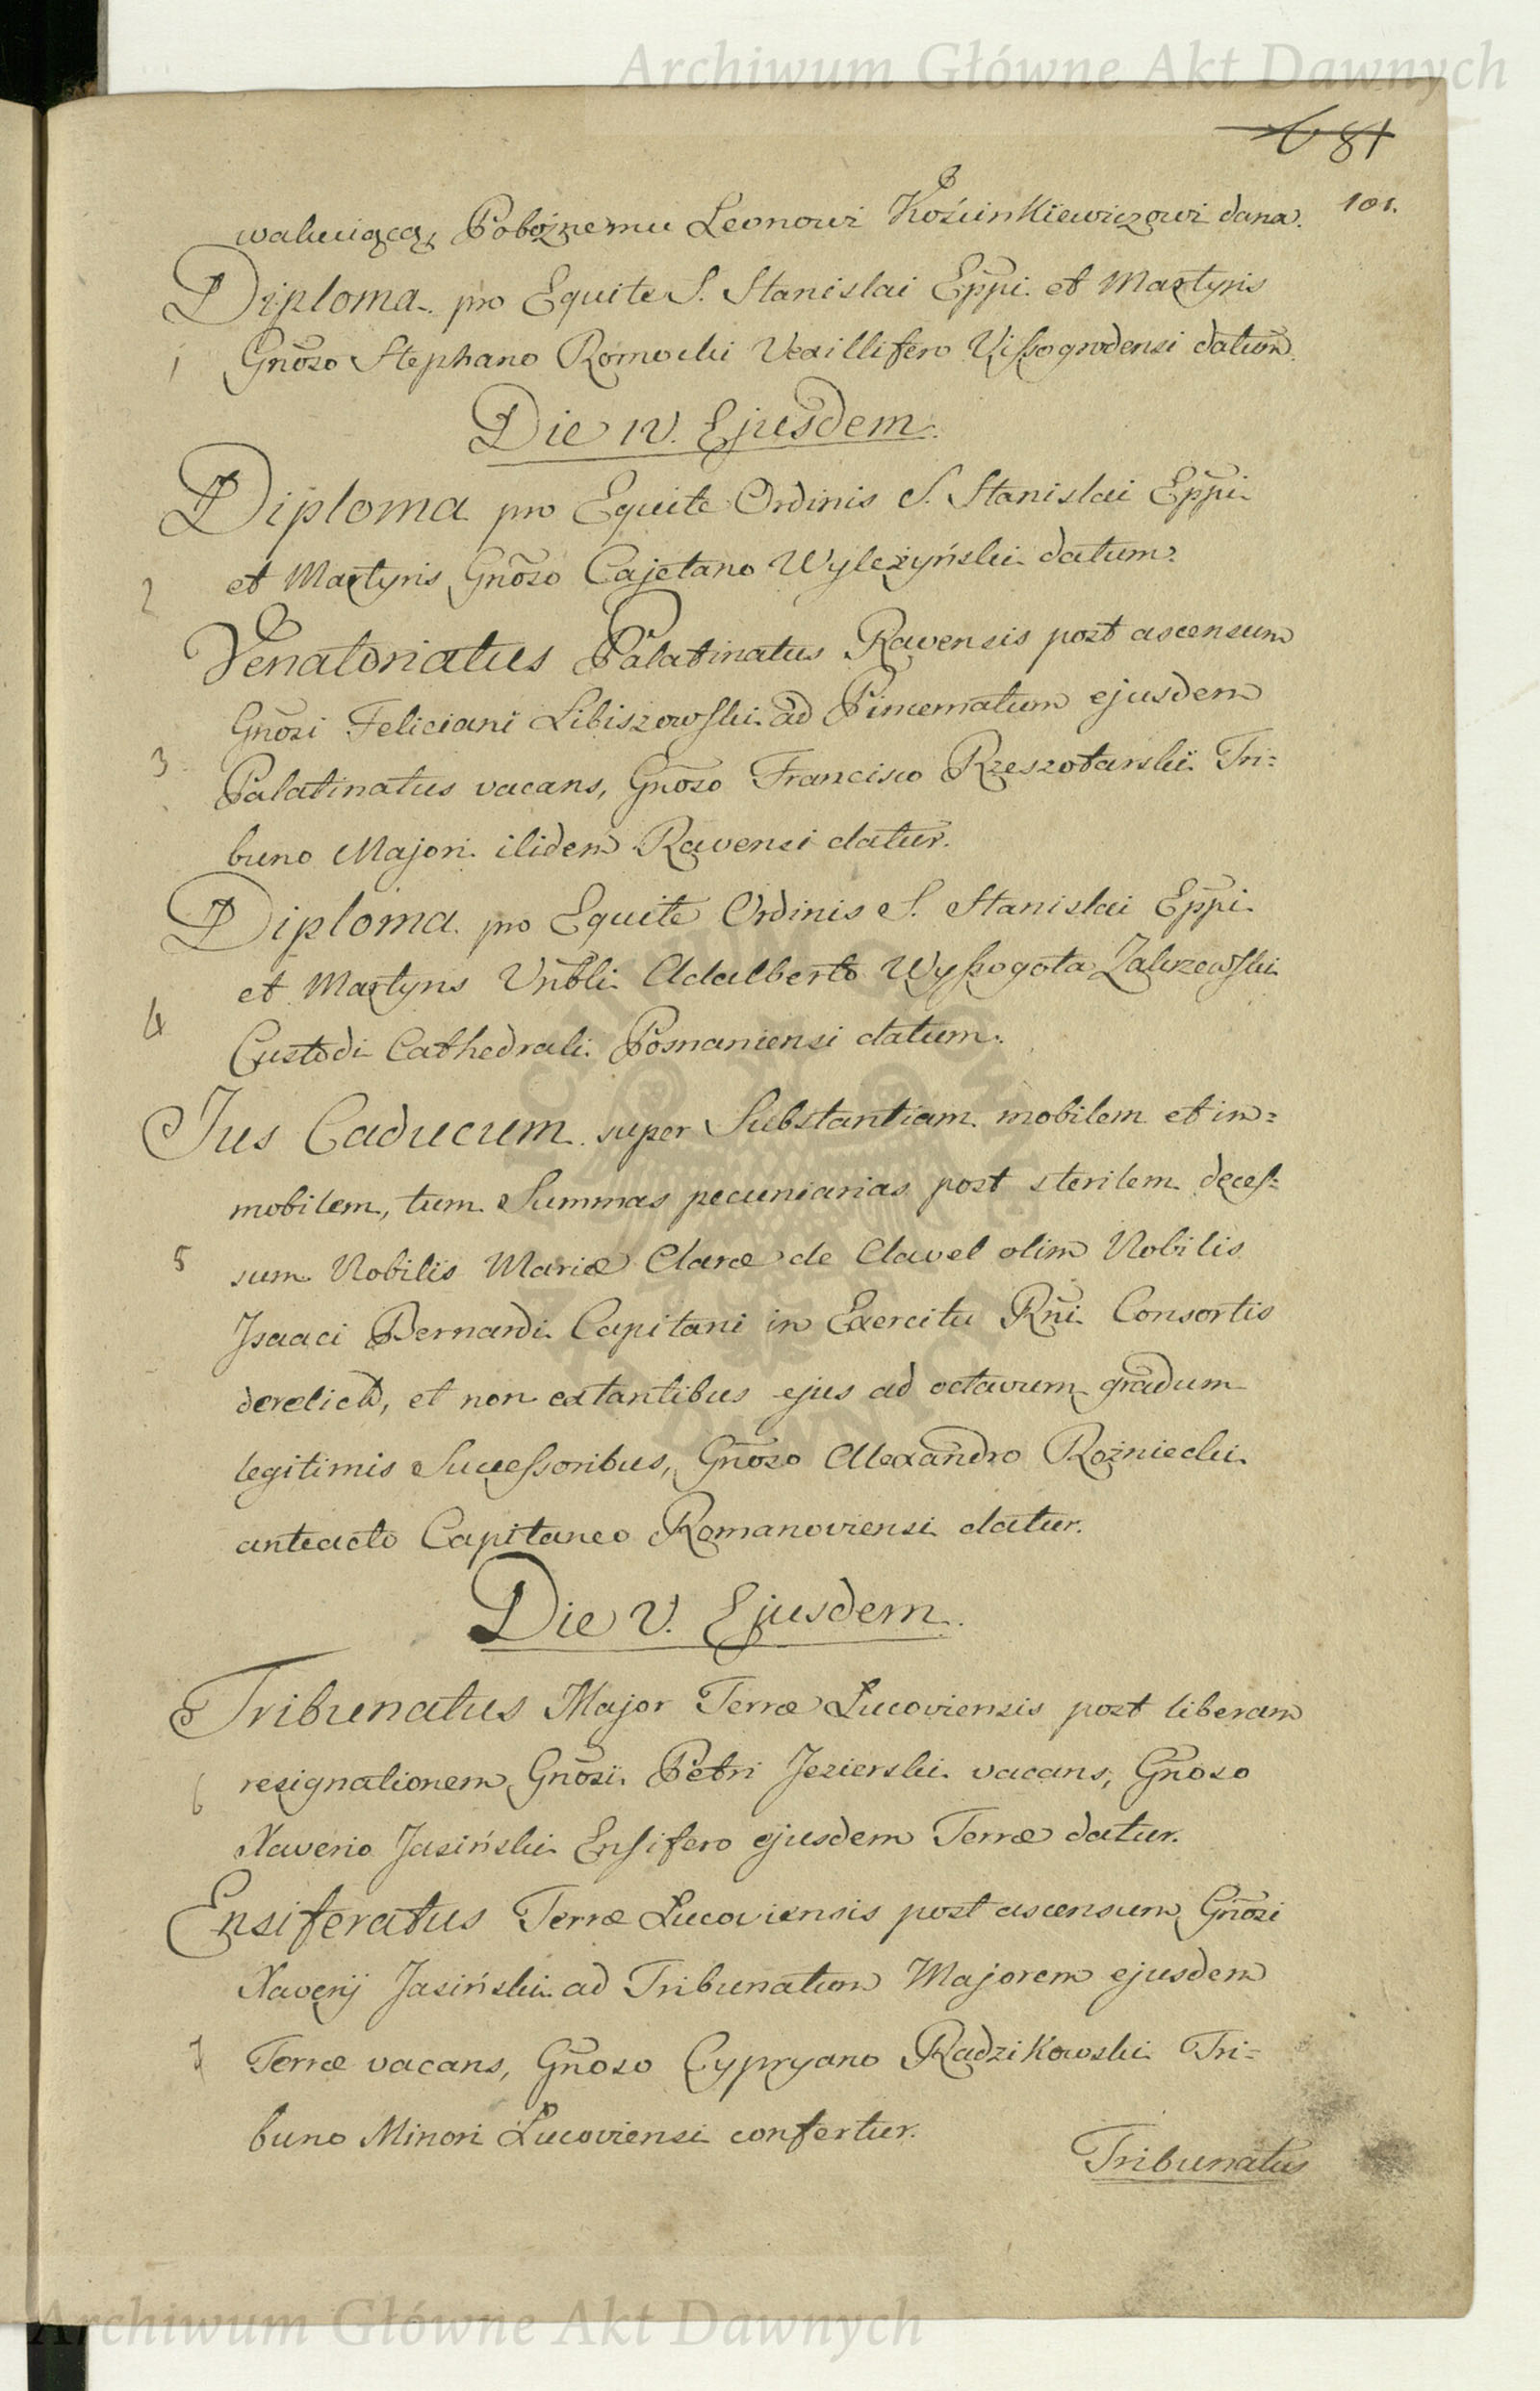 Archiwum Główne Akt Dawnych
681
101.
wakuiącą, Pobożnemu Leonowi Kożuinkiewiczowi dana.
Diploma pro Equite S. Stanislai Eppi et Martyris
1 Gnoso Stephano Romocki Vexillifero Vissogrodensi datum.
Die IV. Ejusdem.
Diploma pro Equite Ordinis S. Stanislai Eppi
et Martyris Gnoso Cajetano Wyleżyński datum.
2
Venatoriatus Palatinatus Ravensis post ascensum
Gnosi Feliciani Libiszowski ad Pincernatum ejusdem
3 Palatinatus vacans, Gnoso Francisco Rzeszotarski Tri=
buno Majori ibidem Ravensi datur.
Diploma pro Equite Ordinis S. Stanislai Eppi
et Martyris Vnbli Adalberto Wyssogota Zakrzewski
4 Custodi Cathedrali Posnaniensi datum.
Jus Caducum super Substantiam mobilem et im=
mobilem, tum Summas pecuniarias post sterilem deces=
5 sum Nobilis Mariæ Claræ de Clavel olim Nobilis
Isaaci Bernardi Capitani in Exercitu Rni Consortis
derelicta, et non extantibus ejus ad octavum gradum
legitimis Successoribus, Gnoso Alexandro Rożniecki
anteacto Capitaneo Romanoviensi datur.
Die V. Ejusdem.
Tribunatus Major Terræ Lucoviensis post liberam
6 resignationem Gnosi Petri Jezierski vacans, Gnoso
Xaverio Jasiński Ensifero ejusdem Terræ datur.
Ensiferatus Terræ Lucoviensis post ascensum Gnosi
Xaverij Jasiński ad Tribunatum Majorem ejusdem
7 Terræ vacans, Gnoso Cypryano Radzikowski Tri=
buno Minori Lucoviensi confertur.
Tribunatus
Archiwum Główne Akt Dawnych